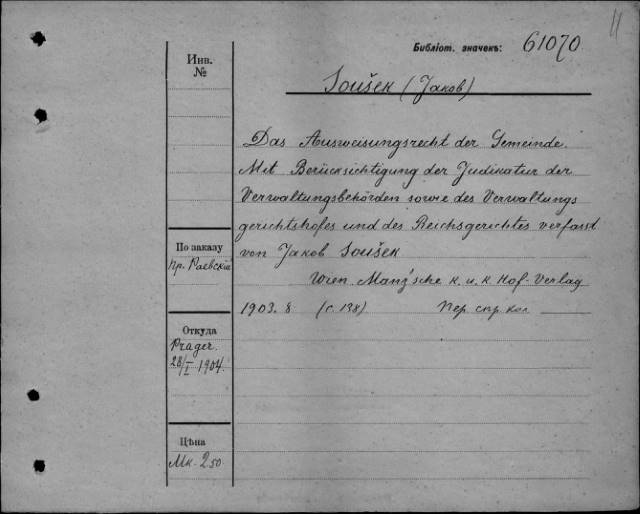 11
Библіот. значекъ: 61070
Инв.
№
Soušek (Jakob)
Das Ausweisungsrecht der Gemeinde.
Mit Berücksichtigung der Judikatur der
Verwaltungsbehörden sowie des Verwaltungs
gerichtshofes und des Reichsgerichtes verfasst
von Jakob Soušek
Wien. Manz'sche k. u. k. Hof-Verlag
1903. 8 (с. 138) Пер. спр. кол.
По заказу
Пр. Раевскій
Откуда
Prager.
28/I 1904.
Цѣна
Мк. 2 50.